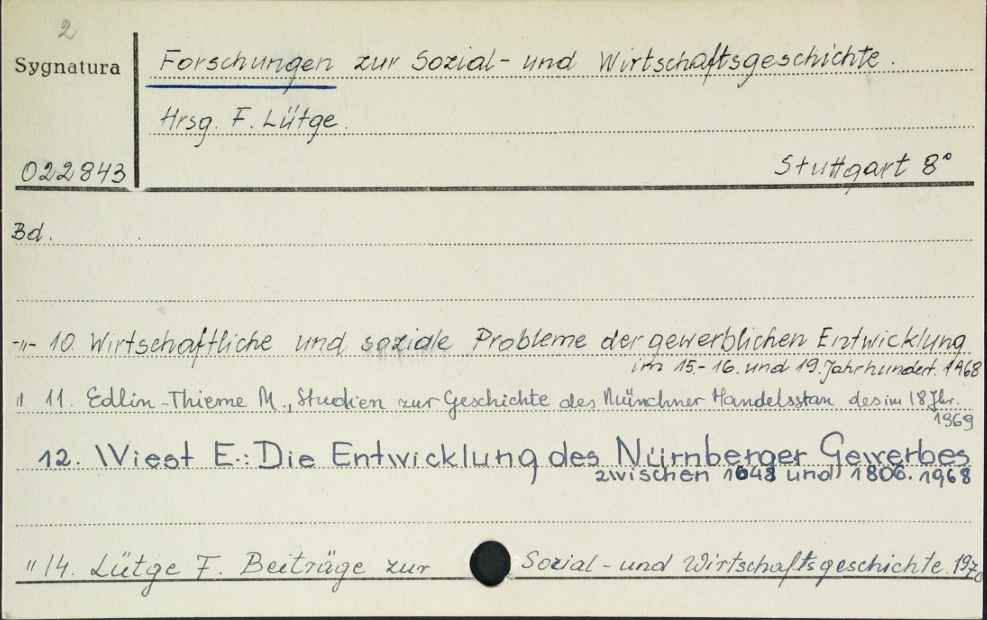 2
Sygnatura
Forschungen zur Sozial- und Wirtschaftsgeschichte.
Hrsg. F. Lütge.
022843
Stuttgart 8°
Bd.
-"- 10 Wirtschaftliche und soziale Probleme der gewerblichen Entwicklung
im 15.- 16. und 19. Jahrhundert. 1968
" 11. Edlin-Thieme M., Studien zur Geschichte des Münchner Handelsstan des im 18 Jhr.
1969
12. Wiest E.: Die Entwicklung des Nürnberger Gewerbes
zwischen 1648 und 1806. 1968
" 14. Lütge F. Beiträge zur Sozial- und Wirtschaftsgeschichte. 1970